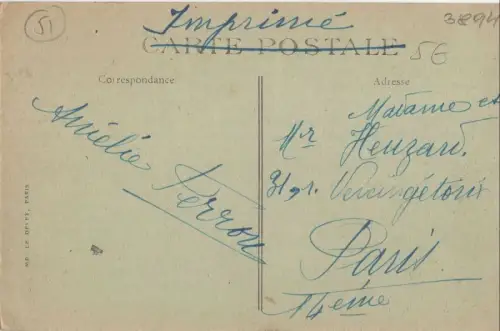 51
Imprimé
3894
CARTE POSTALE
5€
Correspondance
Adresse
Amélie Perron
Madame et
Mr Heuzard.
31, r. Vercingétorix
Paris
14ème
LE DELEY, PARIS